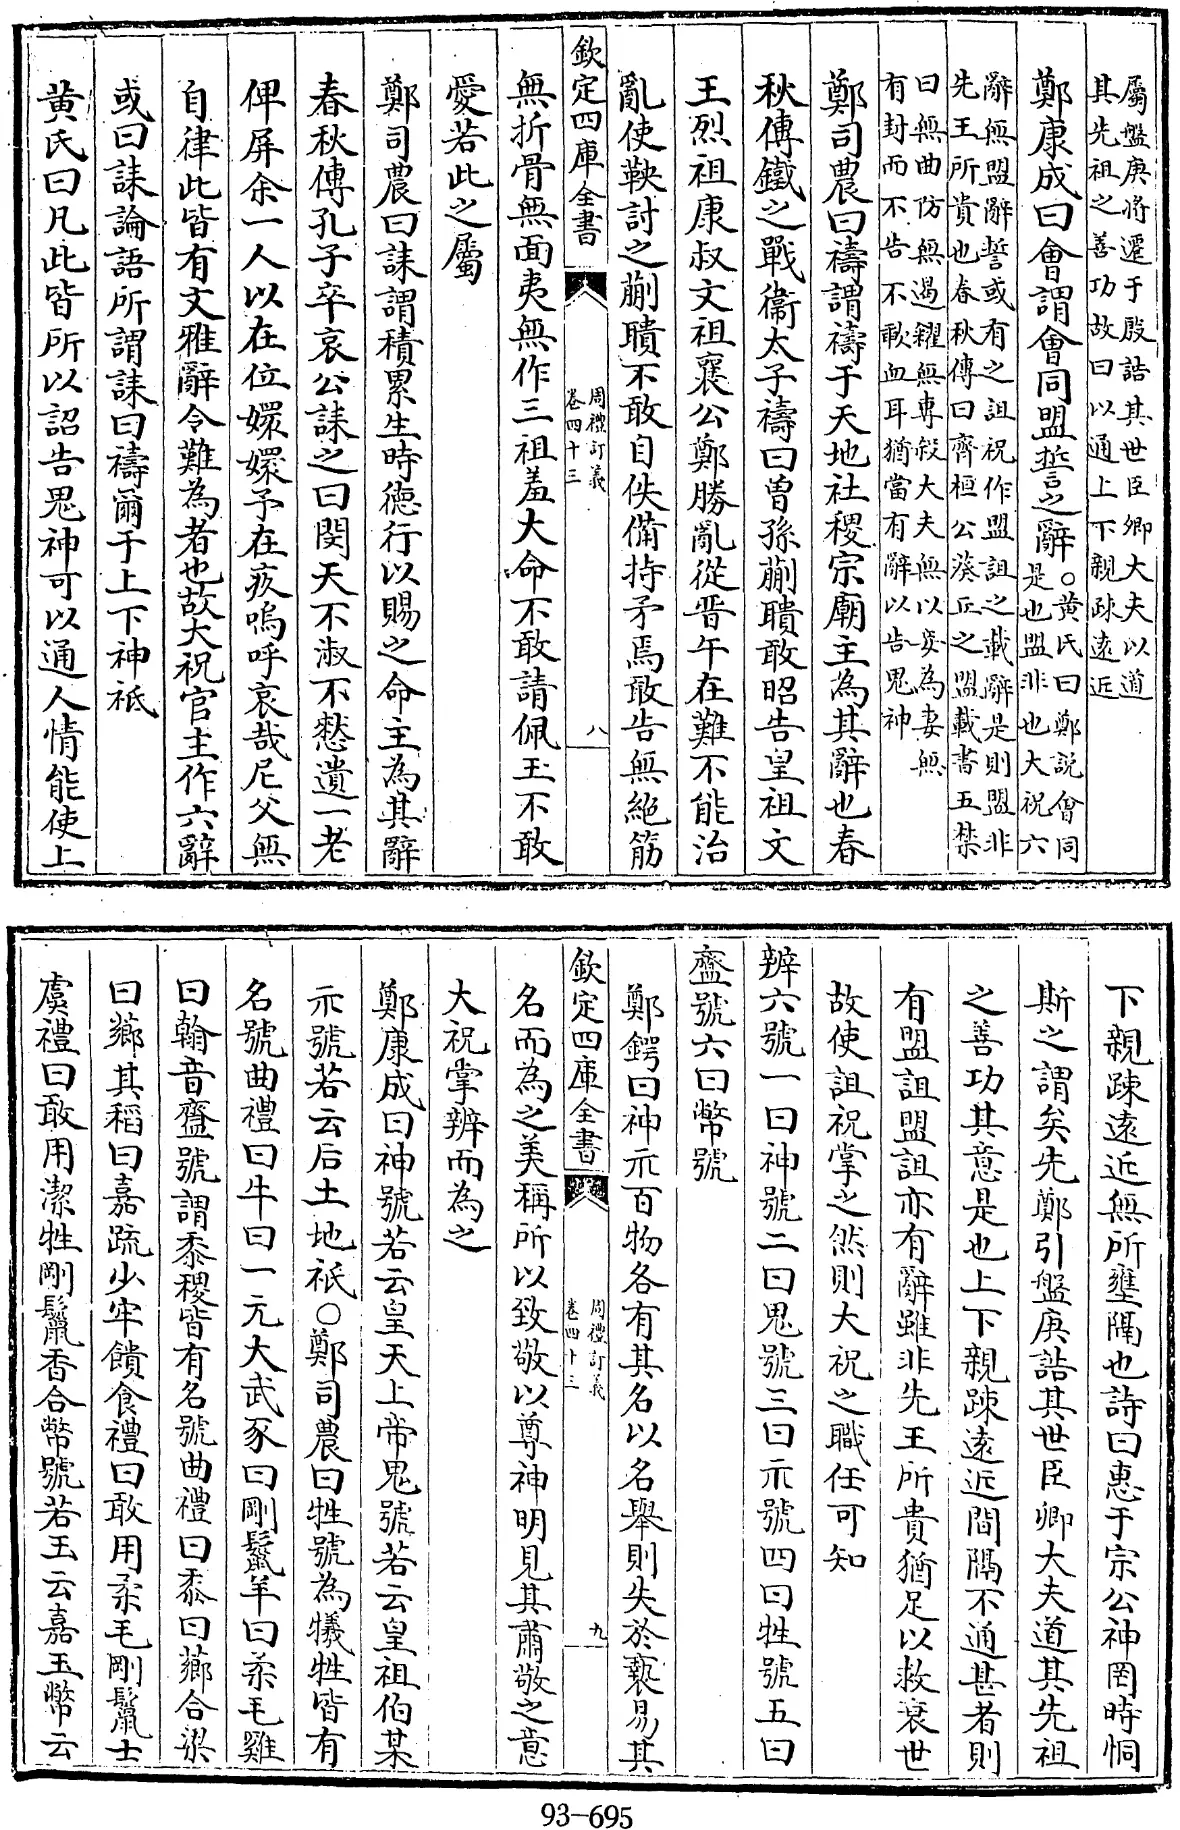 屬盤庚將遷于殷誥其世臣卿大夫以道
其先祖之善功故曰以通上下親疎遠近
鄭康成曰會謂會同盟誓之辭○黄氏曰鄭說會同
是也盟非也大祝六
辭無盟辭誓或有之詛祝作盟詛之載辭是則盟非
先王所貴也春秋傳曰齊桓公葵丘之盟載書五禁
曰無曲防無遏糴無專殺大夫無以妾為妻無
有封而不告不歃血耳猶當有辭以告鬼神
鄭司農曰禱謂禱于天地社稷宗廟主為其辭也春
秋傳鐵之戰衞太子禱曰曽孫蒯聵敢昭告皇祖文
王烈祖康叔文祖襄公鄭勝亂從晋午在難不能治
亂使鞅討之蒯聵不敢自佚備持矛焉敢告無絶筋
欽定四庫全書
周禮訂義
卷四十三
八
無折骨無面夷無作三祖羞大命不敢請佩玉不敢
愛若此之屬
鄭司農曰誄謂積累生時德行以賜之命主為其辭
春秋傳孔子卒哀公誄之曰閔天不淑不憖遺一老
俾屏余一人以在位嬛嬛予在疚嗚呼哀哉尼父無
自律此皆有文雅辭令難為者也故大祝官主作六辭
或曰誄論語所謂誄曰禱爾于上下神祗
黄氏曰凡此皆所以詔告鬼神可以通人情能使上
下親疎遠近無所壅隔也詩曰惠于宗公神罔時恫
斯之謂矣先鄭引盤庚誥其世臣卿大夫道其先祖
之善功其意是也上下親疎遠近間隔不通甚者則
有盟詛盟詛亦有辭雖非先王所貴猶足以救衰世
故使詛祝掌之然則大祝之職任可知
辨六號一曰神號二曰鬼號三曰示號四曰牲號五曰
齍號六曰幣號
鄭鍔曰神示百物各有其名以名舉則失於褻易其
欽定四庫全書
周禮訂義
卷四十三
九
名而為之美稱所以致敬以尊神明見其肅敬之意
大祝掌辨而為之
鄭康成曰神號若云皇天上帝鬼號若云皇祖伯某
示號若云后土地祇○鄭司農曰牲號為犧牲皆有
名號曲禮曰牛曰一元大武豕曰剛鬛羊曰柔毛雞
曰翰音齍號謂黍稷皆有名號曲禮曰黍曰薌合粱
曰薌其稻曰嘉疏少牢饋食禮曰敢用柔毛剛鬛士
虞禮曰敢用潔牲剛鬛香合幣號若玉云嘉玉幣云
93-695